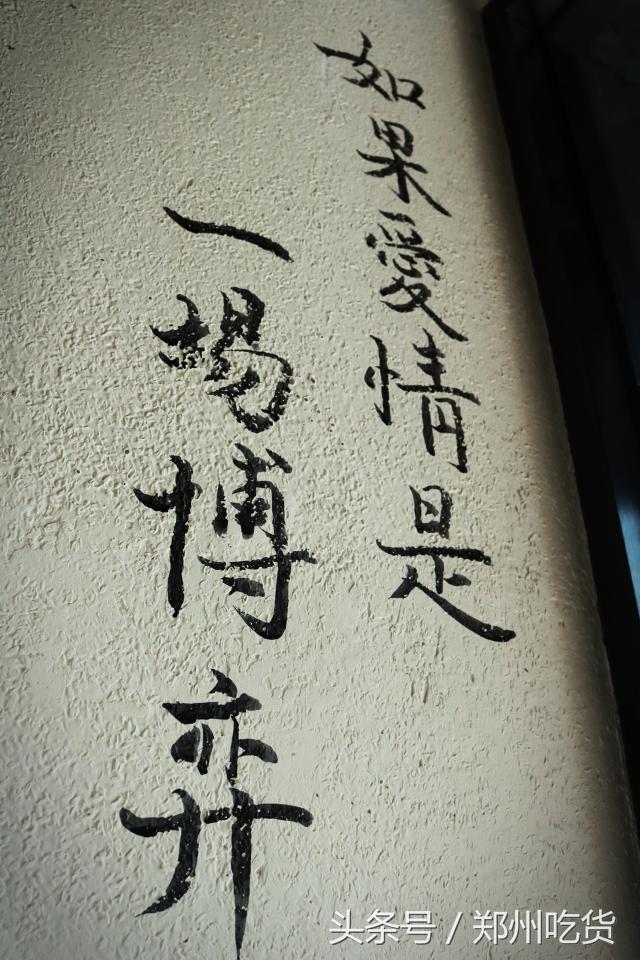 如果愛情是
一場博弈
头条号 / 郑州吃货